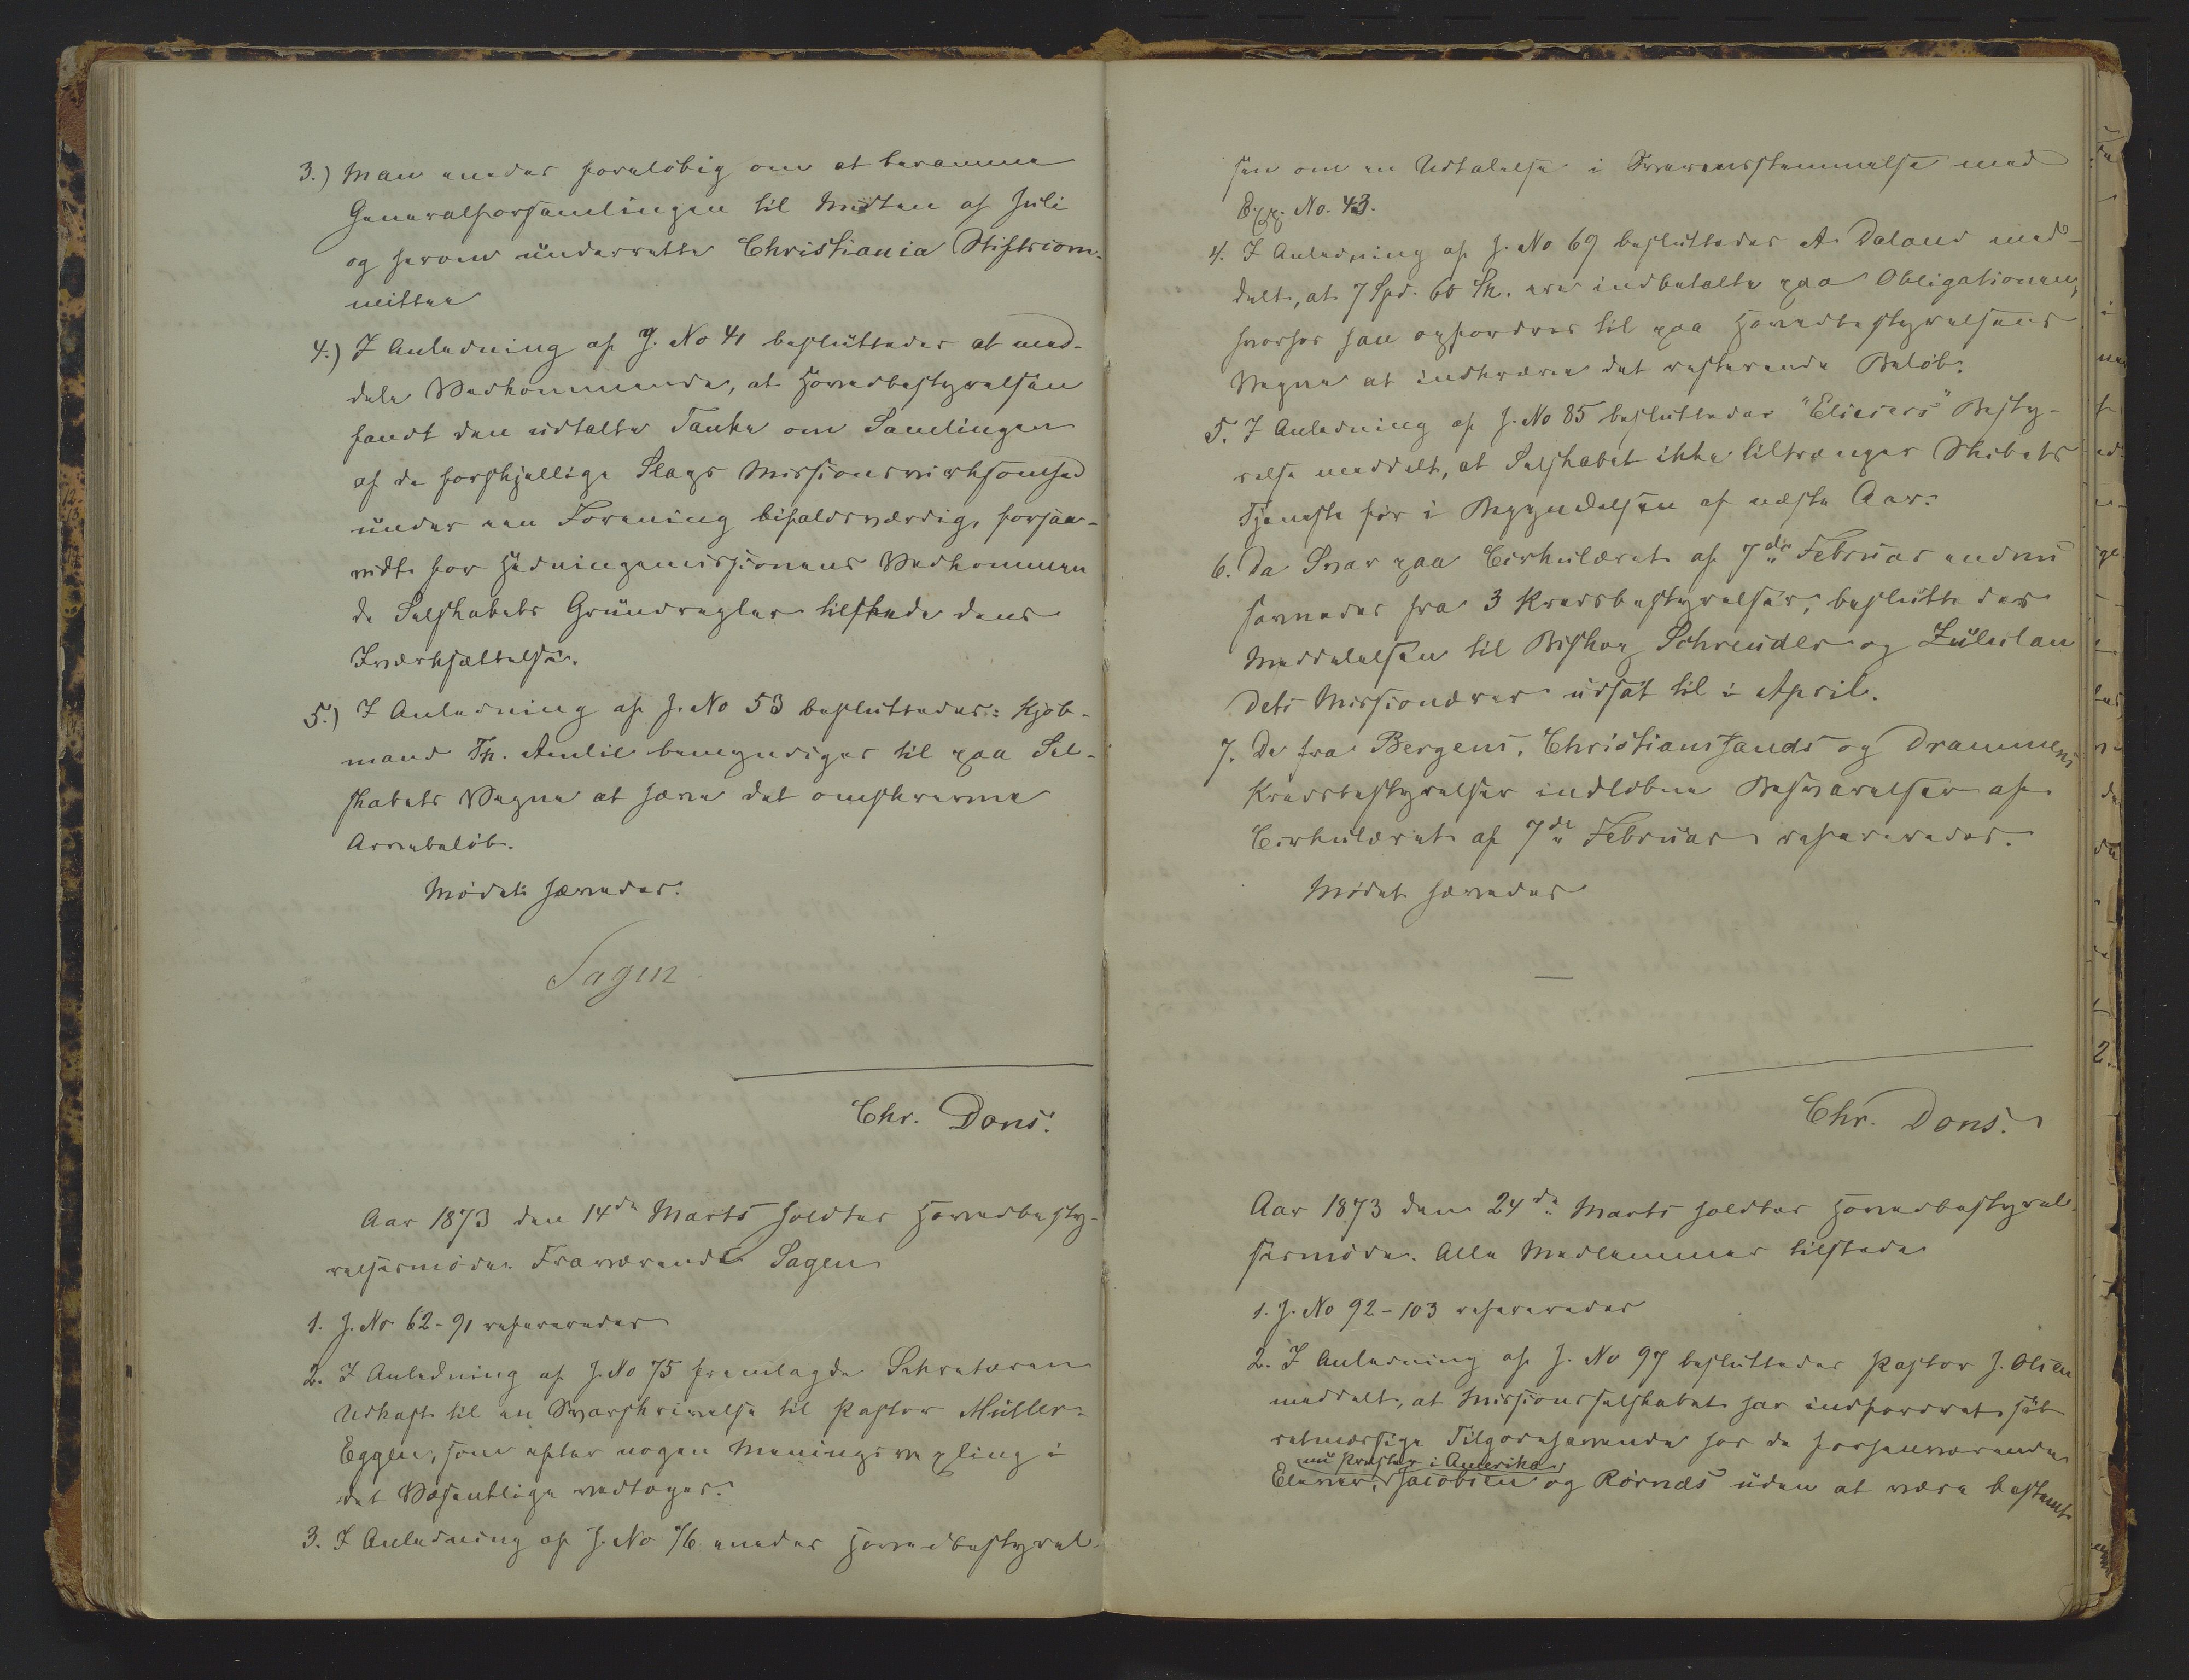 3.) Man enedes foreløbig om at beramme
Generalforsamlingen til Midten af Juli
og herom underrette Christiania Stiftscom-
mittee
4.) I Anledning af J. No 41 besluttedes at med-
dele Vedkommende, at Hovedbestyrelsen
fandt den udtalte Tanke om Samlingen
af de forskjellige Slags Missionsvirksomhed
under een Forening bifaldsværdig, forsaa-
vidt for Hedningemissionens Vedkommen
de Selskabets Grundregler tilstede dens
Iværksættelse.
5.) I Anledning af J. No 53 besluttedes: Kjøb-
mand Th. Amlie bemyndiges til paa Sel-
skabets Vegne at hæve det omskrevne
Arvebeløb.
Mødet hævedes.
Sagen
Chr. Dons.
Aar 1873 den 14de Marts holdtes Hovedbesty-
relsesmøde. Fraværende Sagen
1. J. No 62-91 refereredes
2. I Anledning af J. No 75 fremlagde Sekretæren
Udkast til en Svarskrivelse til Pastor Müller-
Eggen, som efter nogen Meningsvexling i
det Væsentlige vedtoges.
3. I Anledning af J. No 76 enedes Hovedbestyrel-
sen om en Udtalelse i Overensstemmelse med
Exp. No. 43.
4. I Anledning af J. No 69 besluttedes A. Daland med-
delt, at 7 Spd. 60 Sk. ere indbetalte paa Obligationen,
hvorfor han opfordres til paa Hovedbestyrelsens
Vegne at indkræve det resterende Beløb.
5. I Anledning af J. No 85 besluttedes "Eliesers" Besty-
relse meddelt, at Selskabet ikke tiltrænger Skibets
Tjeneste før i Begyndelsen af næste Aar.
6. Da Svar paa Cirkulæret af 7de Februar endnu
savnedes fra 3 Kredsbestyrelser, besluttedes
Meddelelsen til Biskop Schreuder og Zululan
dets Missionærer udsat til i April.
7. De fra Bergens, Christianssands og Drammens
Kredsbestyrelser indløbne Besvarelser af
Cirkulæret af 7de Februar refereredes.
Mødet hævedes
Chr. Dons.
Aar 1873 den 24de Marts holdtes Hovedbestyrel-
sesmøde. Alle Medlemmer tilstede
1. J. No 92-103 refereredes
2. I Anledning af J. No 97 besluttedes Pastor J. Olsen
meddelt, at Missionsselskabet har indfordret sit
retmæssige Tilgodehavende hos de forhenværende
nu Præster i Amerika
Elever, Jacobsen og Rørnæs uden at være bestemt